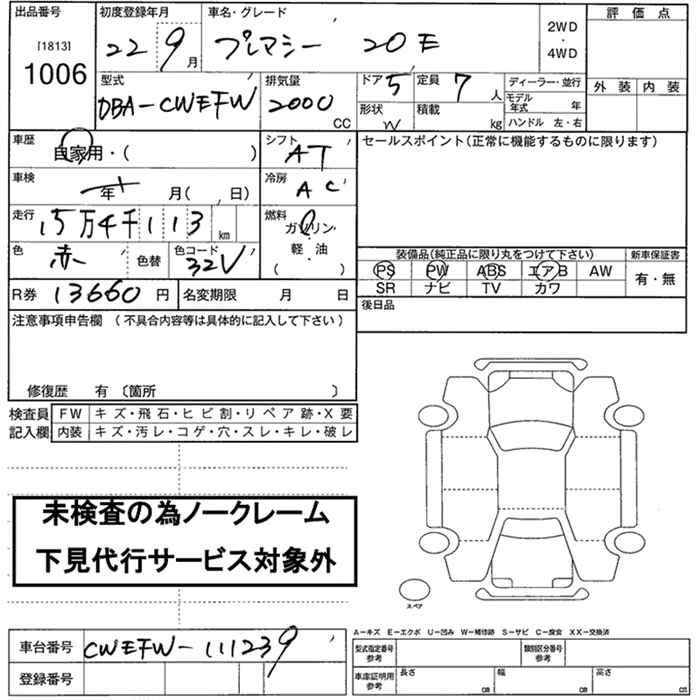 出品番号 初度登録年月 車名・グレード 評価点
[1813] 22 9月 プレマシー 20E 2WD・4WD
1006 型式 排気量 ドア 5 定員 7人 ディーラー・並行 外装 内装
DBA-CWEFW 2000CC 形状 W 積載 kg モデル年式 年
ハンドル 左・右
車歴 自家用・( ) シフト AT セールスポイント(正常に機能するものに限ります)
車検 年 月( 、日) 冷房 AC
走行 15万4千113km 燃料 ガソリン・軽油 ( )
色 赤 色替 色コード 32V 装備品(純正品に限り丸をつけて下さい) 新車保証書
PS PW ABS エアB AW 有・無
SR ナビ TV カワ
R券 13660円 名変期限 月 日 後日品
注意事項申告欄 (不具合内容等は具体的に記入して下さい)
修復歴 有 〔箇所 〕
検査員 FW キズ・飛石・ヒビ割・リペア跡・X要
記入欄 内装 キズ・汚レ・コゲ・穴・スレ・キレ・破レ
未検査の為ノークレーム
下見代行サービス対象外
スペア
A-キズ E-エクボ U-凹み W-補修跡 S-サビ C-腐食 XX-交換済
車台番号 CWEFW-111239 型式指定番号 参考 類別区分番号 参考
登録番号 車庫証明用 参考 長さ cm 幅 cm 高さ cm